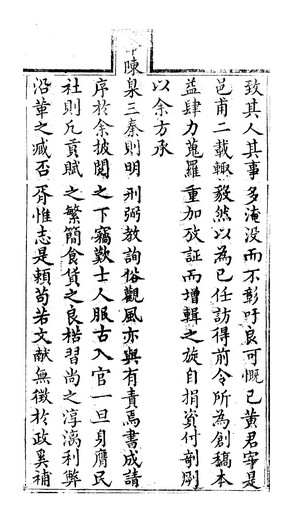 致其人其事多淹没而不彰吁良可慨已黄君宰是
邑甫二載輙毅然以為已任訪得前令所為創稿本
益肆力蒐羅重加攷証而增輯之旋自捐資付剞劂
以余方承
陳臬三秦則明刑弼教詢俗觀風亦與有責焉書成請
序於余披閲之下竊歎士人服古入官一旦身膺民
社則凡貢賦之繁簡食貨之良楛習尚之淳漓利弊
沿革之臧否胥惟志是頼苟若文献無徵於政奚補